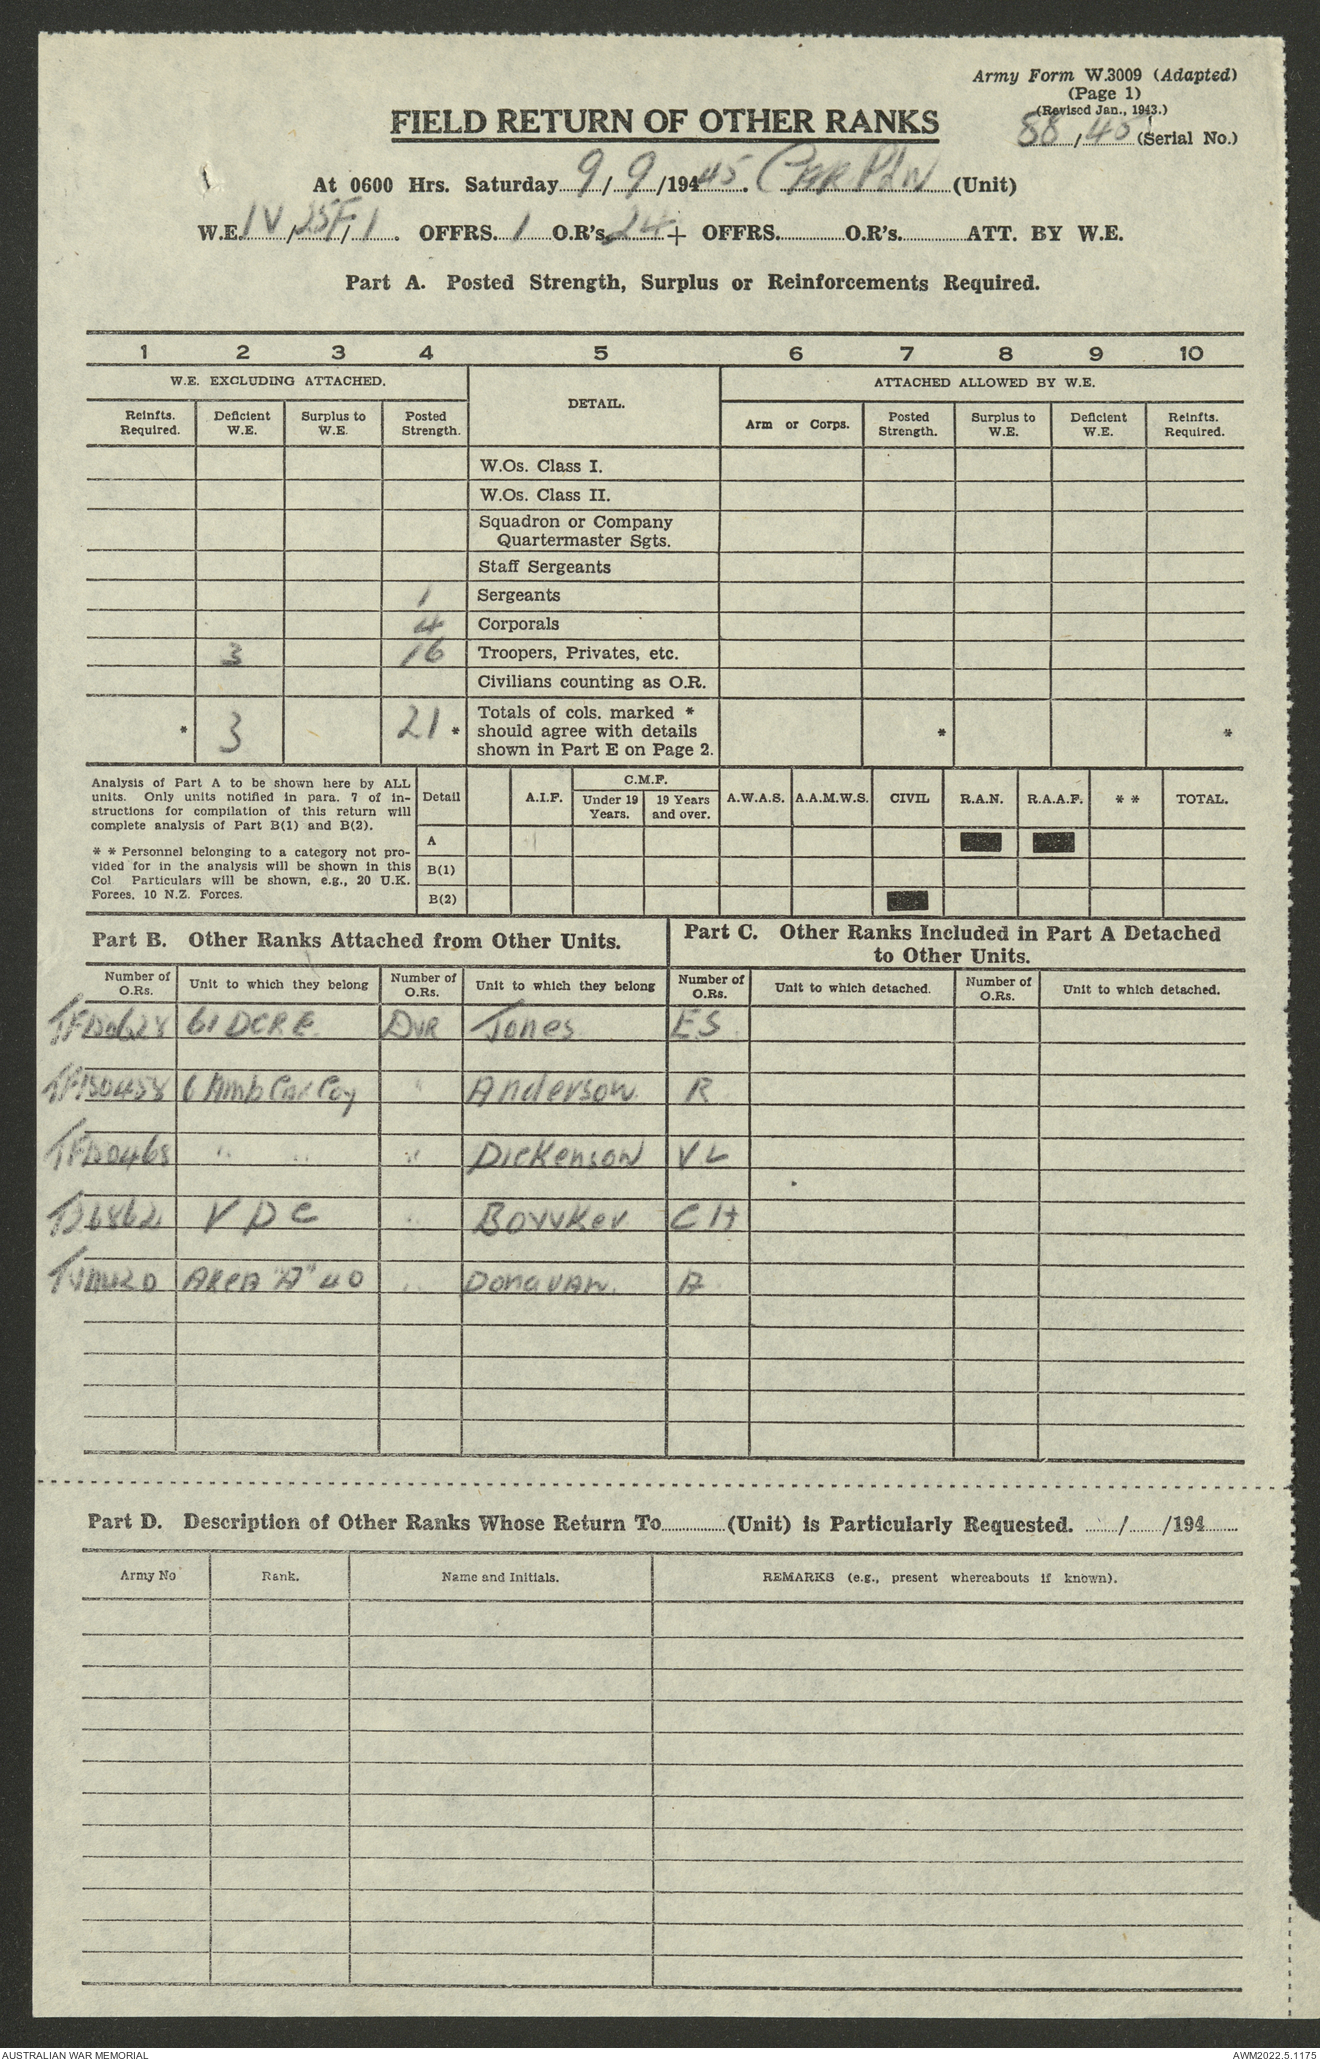 Army Form W.3009 (Adapted)
(Page 1)
(Revised Jan., 1943.)
88/45 (Serial No.)
FIELD RETURN OF OTHER RANKS
At 0600 Hrs. Saturday 9/9/194 45. Car Pln (Unit)
W.E. IV/25F/1. OFFRS. 1 O.R's. 24 + OFFRS. O.R's. ATT. BY W.E.
Part A. Posted Strength, Surplus or Reinforcements Required.
1 2 3 4 5 6 7 8 9 10
W.E. EXCLUDING ATTACHED. DETAIL. ATTACHED ALLOWED BY W.E.
Reinfts. Required. Deficient W.E. Surplus to W.E. Posted Strength. Arm or Corps. Posted Strength. Surplus to W.E. Deficient W.E. Reinfts. Required.
W.Os. Class I.
W.Os. Class II.
Squadron or Company
Quartermaster Sgts.
Staff Sergeants
1 Sergeants
4 Corporals
3 16 Troopers, Privates, etc.
Civilians counting as O.R.
* 3 21 * Totals of cols. marked * should agree with details shown in Part E on Page 2. * *
Analysis of Part A to be shown here by ALL
units. Only units notified in para. 7 of in-
structions for compilation of this return will
complete analysis of Part B(1) and B(2).
* * Personnel belonging to a category not pro-
vided for in the analysis will be shown in this
Col. Particulars will be shown, e.g., 20 U.K.
Forces, 10 N.Z. Forces.
Detail A.I.F. C.M.F. Under 19 Years. 19 Years and over. A.W.A.S. A.A.M.W.S. CIVIL R.A.N. R.A.A.F. * * TOTAL.
A
B(1)
B(2)
Part B. Other Ranks Attached from Other Units.
Part C. Other Ranks Included in Part A Detached
to Other Units.
Number of O.Rs. Unit to which they belong Number of O.Rs. Unit to which they belong Number of O.Rs. Unit to which detached. Number of O.Rs. Unit to which detached.
61 DCRE Dvr Jones ES
6 Amb Car Coy " Anderson R
" " " Dickenson VL
VDC " CH
Area "A" 40 " Donavan A
Part D. Description of Other Ranks Whose Return To (Unit) is Particularly Requested. / /194
Army No Rank. Name and Initials. REMARKS (e.g., present whereabouts if known).
AUSTRALIAN WAR MEMORIAL AWM2022.5.1175